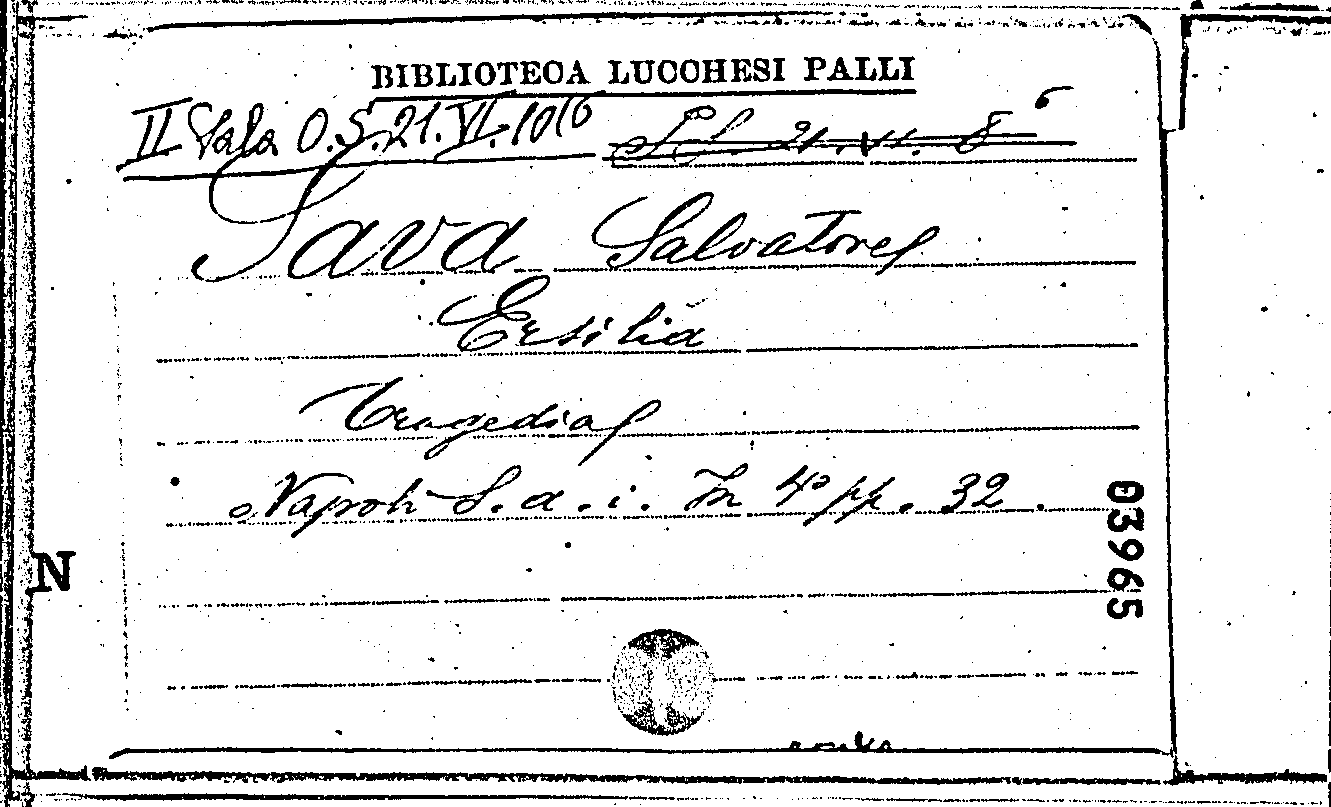 BIBLIOTECA LUCCHESI PALLI
II Sala O.S.21.VI.10(6 21.VI.8 6
Sava Salvatore
Ersilia
Tragedia
Napoli S. a. i. In 4° pp. 32.
03965
N